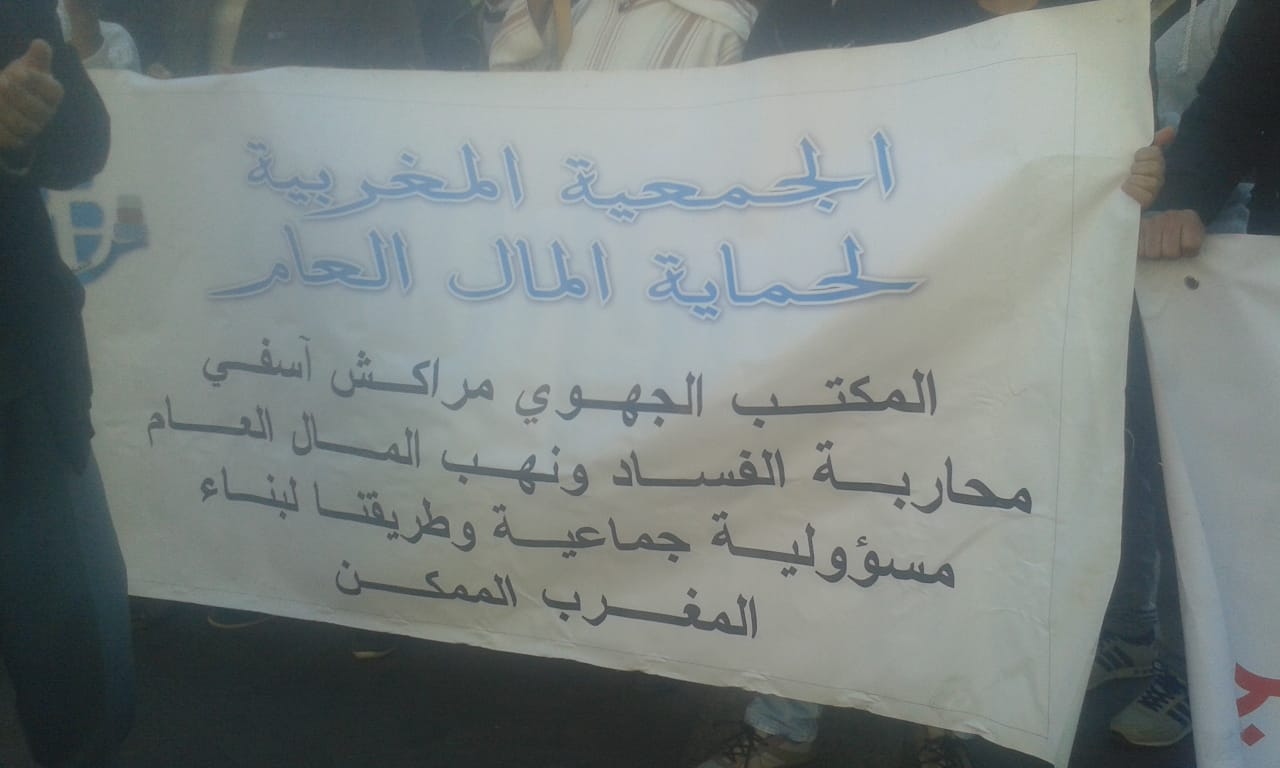 الجمعية المغربية
لحماية المال العام
المكتب الجهوي مراكش آسفي
محاربة الفساد ونهب المال العام
مسؤولية جماعية وطريقتنا لبناء
المغرب الممكن